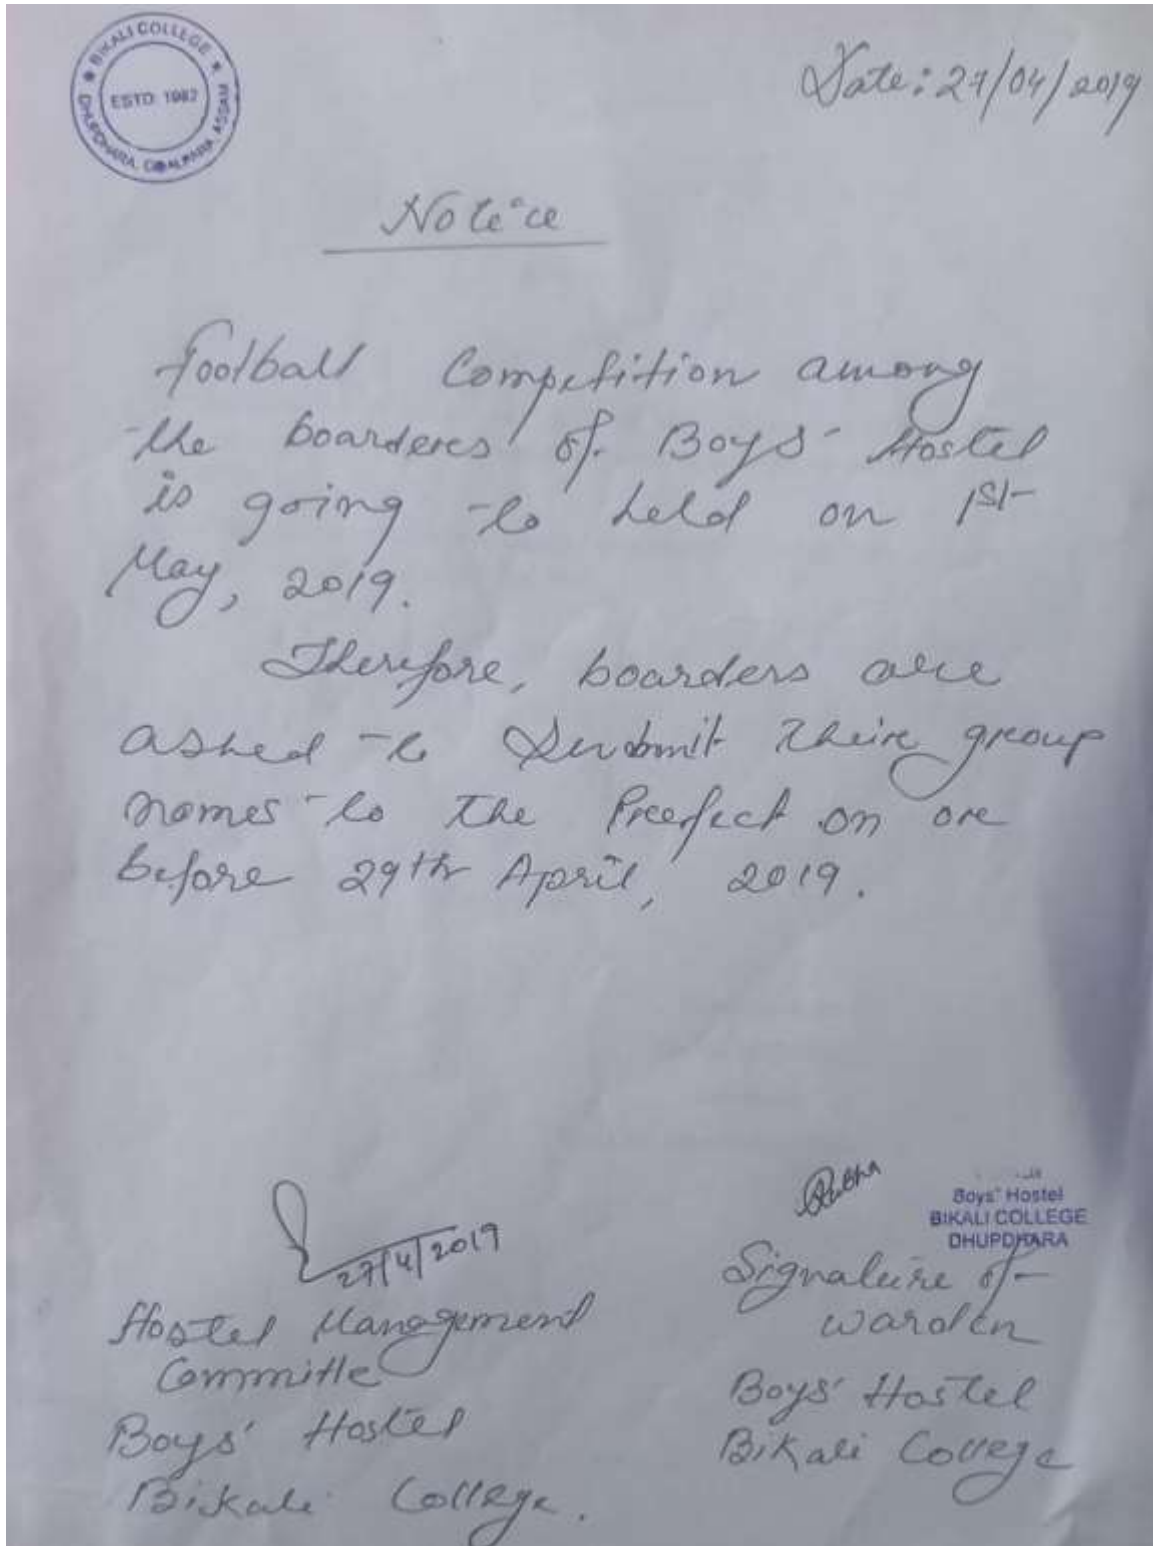 ★ BIKALI COLLEGE ★
ESTD 1982
DHUPDHARA, GOALPARA, ASSAM
Date: 27/04/2019
Notice
Football Competition among
the boarders of Boys' Hostel
is going to held on 1st
May, 2019.
Therefore, boarders are
asked to Submit their group
names to the Prefect on or
before 29th April, 2019.
27/4/2019
Hostel Management
Committe
Boys' Hostel
Bikali College.
Rabha
Boys' Hostel
BIKALI COLLEGE
DHUPDHARA
Signature of
warden
Boys' Hostel
Bikali College